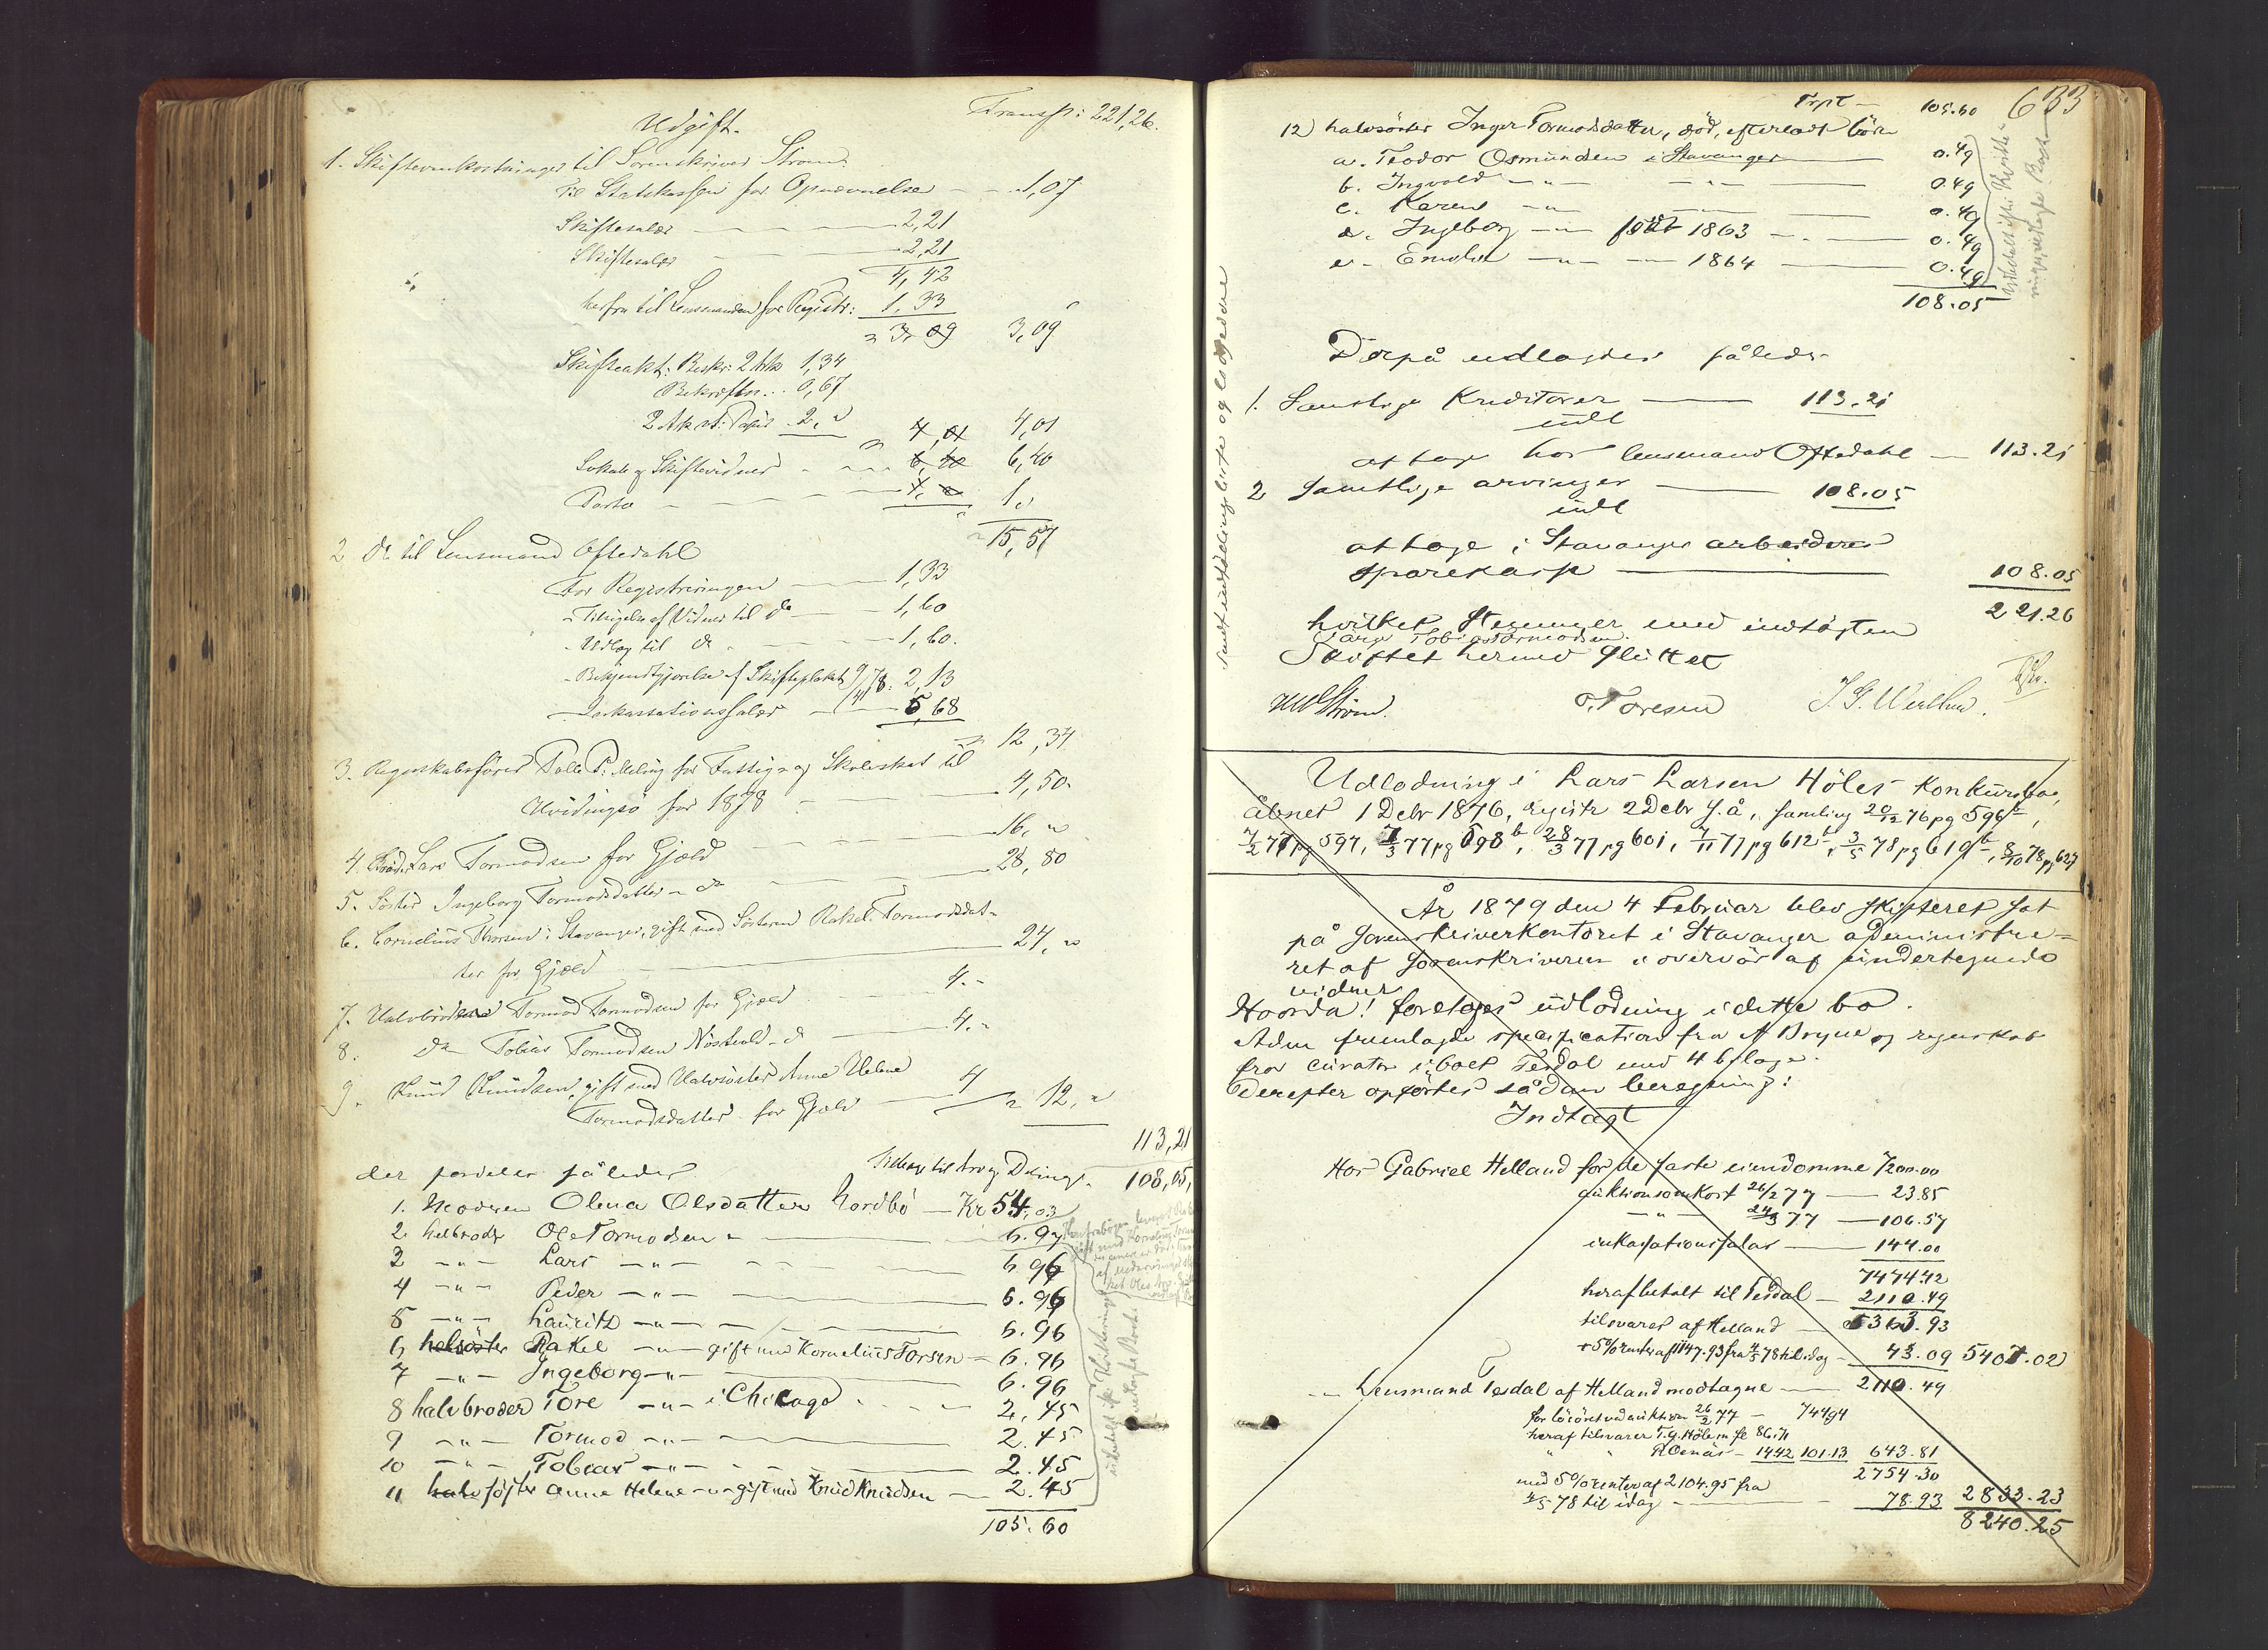 Transp: 221,26.
Udgift.
1. Skifteomkostninger til Sorenskriver Strøm:
Til Statskassen for Opnævnelse — 1,07
Skiftesalær — 2,21
Skiftesalær — 2,21
4,42
herfra til Lensmanden for Registr: 1,33
3,09 3,09
Skifteakt: Beskr: 2 Ark 1,34
Bekræftn.. 0,67
2 Ark st: Papir 2,"
4,01 4,01
Lokale og Skiftevidner — 6,40 6,40
Porto — 1,"
15,57
2 Do til Lensmand Oftedahl
For Registreringen — 1,33
- Tilsigelse af Vidner til do — 1,60
- Udlæg til do — 1,60.
- Bekjendtgjørelse af Skifteplakat 9/4 78: 2,13
- Inkassationssalær — 5,68
12,34
3. Regnskabsfører Tolle P: Meling for Fattig- og Skoleskat til
Hvidingsö for 1878 — 4,50.
4. Broder Lars Tormodsen for Gjæld — 16, "
5. Söster Ingeborg Tormodsdatter - do — 28,80
6. Cornelius Thorsen i Stavanger, gift med Sösteren Rakel Tormodsdat-
ter for Gjæld — 27, "
7. Halvbroder Tormod Tormodsen for Gjæld — 4.-
8. do Tobias Tormodsen Nöstvold - do — 4.-
9. Knud Knudsen, gift med Halvsöster Anne Helene
Tormodsdatter for Gjæld — 4 12, "
113,21
Tilbage til Arv og Deling. 108,05,
der fordeles således
1. Moderen Olena Olsdatter Nordbö — Kr 54,03
2. helbroder Ole Tormodsen " — 6.97
3 —"— Lars —"— 6.96
4 —"— Peder —"— 6.96
5 —"— Lauritz —"— 6.96
6 helsöster Rakel —"— gift med Kornelius Torsen — 6.96
7 —"— Ingeborg —"— 6.96
8 halvbroder Tore —"— i Chicago 2.45
9 —"— Tormod —"— 2.45
10 —"— Tobias —"— 2.45
11 halvsöster Anne Helene —"— gift med Knud Knudsen — 2.45
105.60
633
Trpt — 105.60
12) halvsöster Inger Tormodsdatter, död, efterladt börn
a. Teodor Osmundsen i Stavanger — 0.49
b. Ingvald —"— —"— 0.49
c. Karen —"— —"— 0.49
d. Ingeborg —"— født 1863 — 0.49
e. —"— 1864 — 0.49
108.05
Derpå udlagdes således
1. Samtlige Kreditorer — 113.21
udl
at tage hos lensmand Oftedahl — 113.21
2 Samtlige arvinger — 108.05
udl
at tage i Stavanger arbeideres
sparekasse — 108.05
221.26
hvilket stemmer med indtægten
Skiftet hermed sluttet
MStröm. T. Toresen
Udlodning i Lars Larsen Höles konkursbo,
åbnet 1 Debr 1876, registr 2 Debr s. å., samling 20/12 76 pg 596b,
7/2 77 pg 597, 7/3 77 pg 598b, 28/3 77 pg 601, 7/11 77 pg 612b, 3/5 78 pg 619b, 8/10 78 pg 627
År 1879 den 4 Februar blev skifteret sat
på sorenskriverkontoret i Stavanger administre-
ret af sorenskriveren i overvær af undertegnede
vidner
Hvorda! foretoges udlodning i dette bo.
Adm fremlagde specification fra Bryne og regnskab
fra curator i boet Tesdal med 4 bilage.
Derefter opførtes sådan beregning:
Indtægt
Hos Gabriel Helland for de faste eiendomme 7200.00
auktionsomkost 26/2 77 — 23.85
—"— 24/3 77 — 106.57
inkassationssalær — 144.00
7474.42
heraf betalt til Tesdal — 2110.49
tilsvarer af Helland — 5363.93
+ 5% renter af 1147.93 fra 4/5 78 til idag — 43.09 5407.02
—"— Lensmand Tesdal af Helland modtagne — 2110.49
for lösöret ved auktion 26/2 77 — 744.94
heraf tilsvarer T. G. Höle m fl 86.71
1442 101.13 643.81
2754.30
med 5% renter af 2104.95 fra
4/5 78 til idag — 78.93 2833.23
8240.25